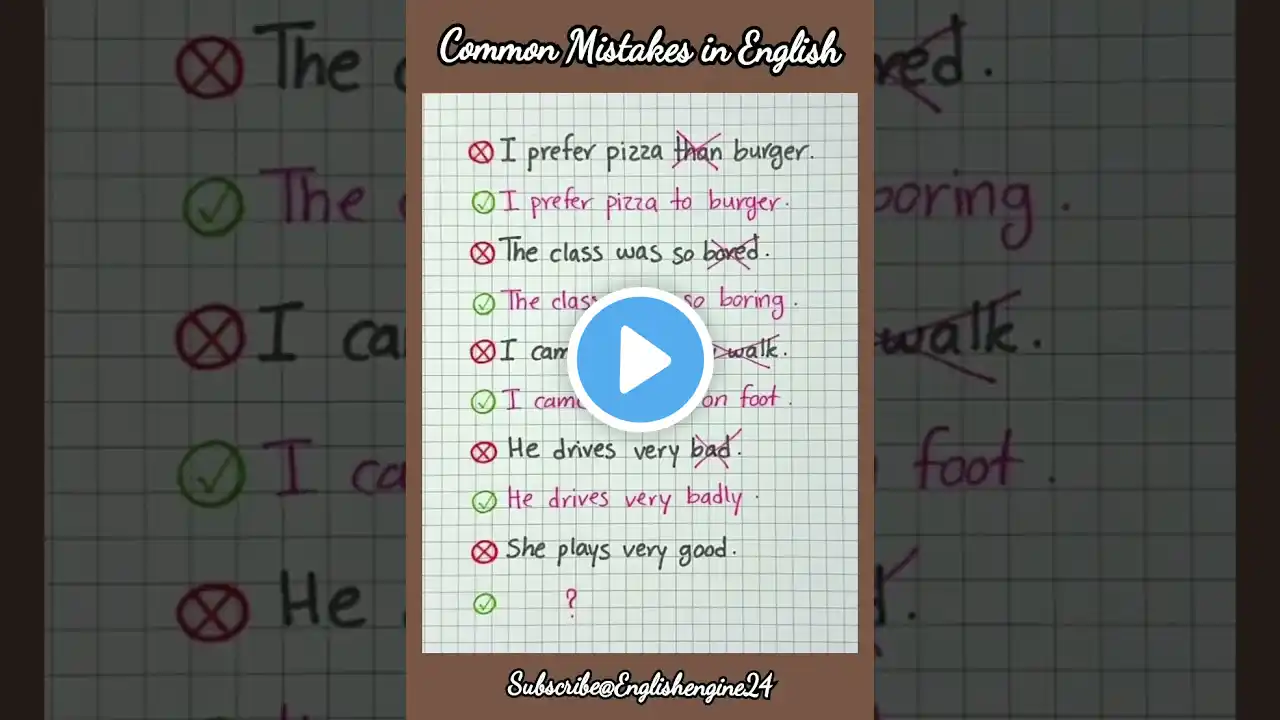 Common Mistakes in English
I prefer pizza than burger.
I prefer pizza to burger.
The class was so bored.
The clas so boring.
I cam walk.
I came on foot.
He drives very bad.
He drives very badly.
She plays very good.
?
Subscribe@Englishengine24